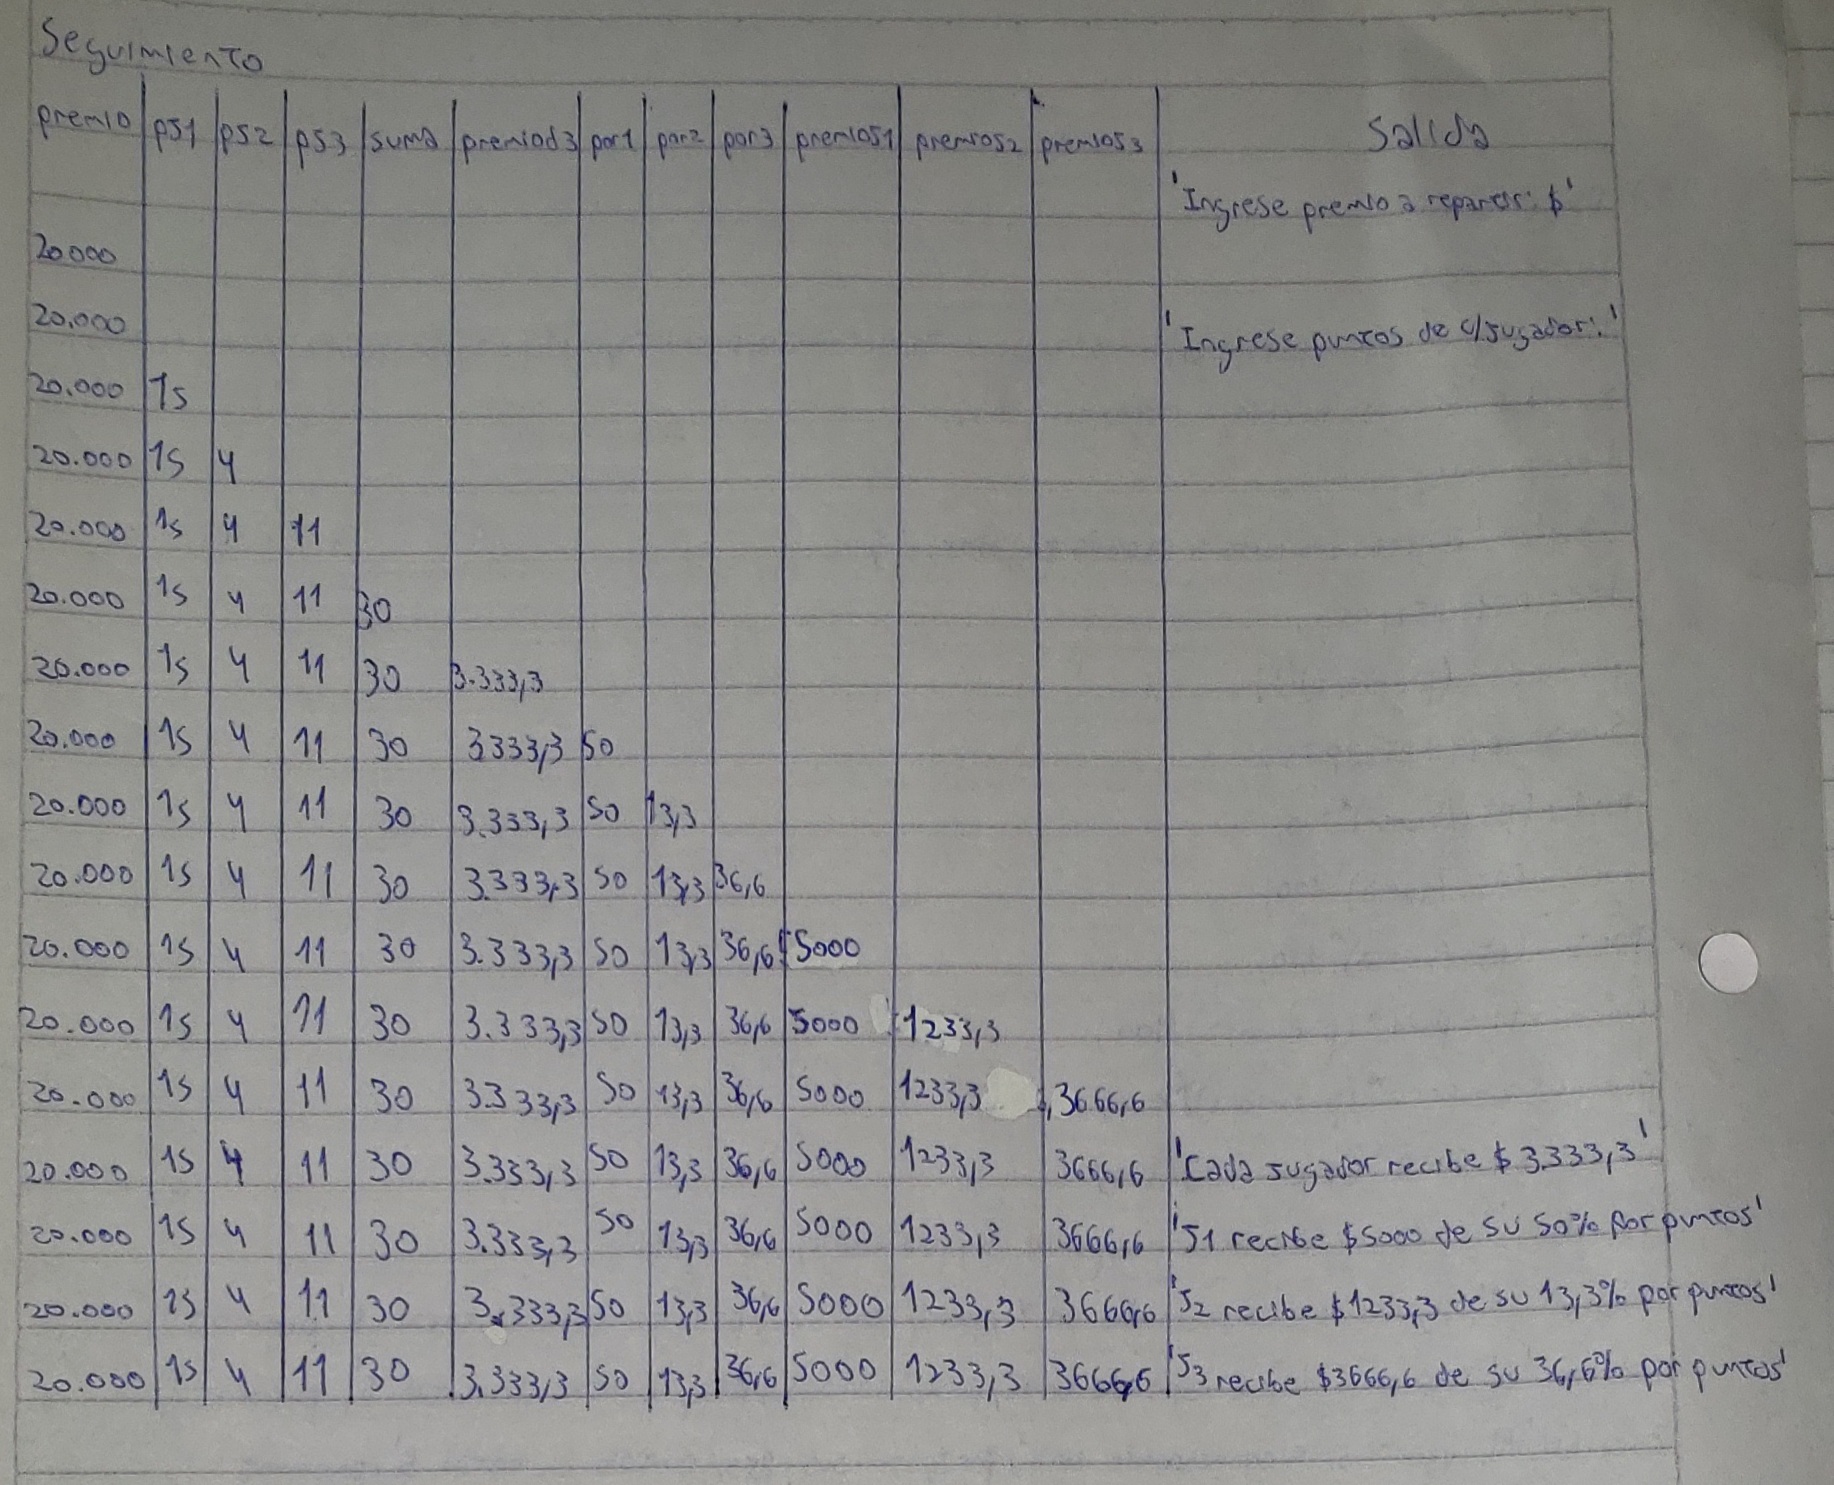 Seguimiento
premio pJ1 pJ2 pJ3 suma premiod3 por1 por2 por3 premioJ1 premioJ2 premioJ3 Salida
'Ingrese premio a repartir: $'
20.000
20.000 'Ingrese puntos de c/jugador:'
20.000 15
20.000 15 4
20.000 15 4 11
20.000 15 4 11 30
20.000 15 4 11 30 3.333,3
20.000 15 4 11 30 3333,3 50
20.000 15 4 11 30 3.333,3 50 13,3
20.000 15 4 11 30 3.333,3 50 13,3 36,6
20.000 15 4 11 30 3.333,3 50 13,3 36,6 5000
20.000 15 4 11 30 3.333,3 50 13,3 36,6 5000 1233,3
20.000 15 4 11 30 3.333,3 50 13,3 36,6 5000 1233,3 3666,6
20.000 15 4 11 30 3.333,3 50 13,3 36,6 5000 1233,3 3666,6 'Cada jugador recibe $3.333,3'
20.000 15 4 11 30 3.333,3 50 13,3 36,6 5000 1233,3 3666,6 'J1 recibe $5000 de su 50% por puntos'
20.000 15 4 11 30 3.333,3 50 13,3 36,6 5000 1233,3 3666,6 'J2 recibe $1233,3 de su 13,3% por puntos'
20.000 15 4 11 30 3.333,3 50 13,3 36,6 5000 1233,3 3666,6 'J3 recibe $3666,6 de su 36,6% por puntos'